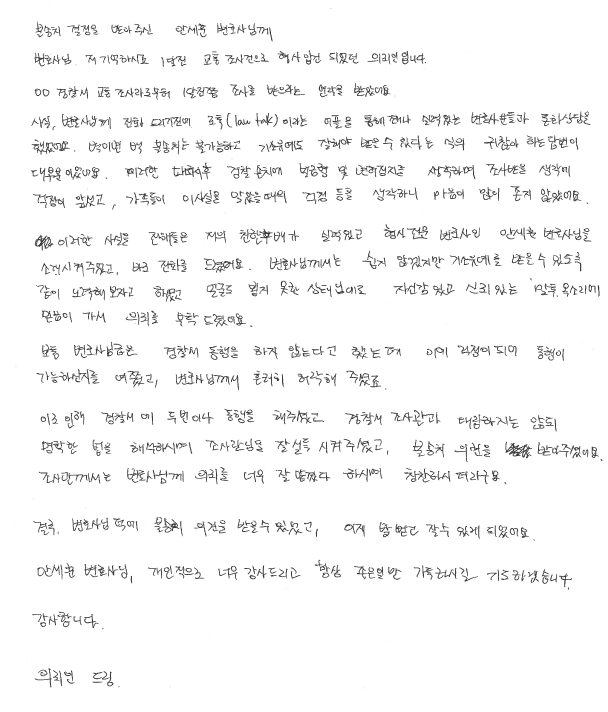 불송치 결정을 받아주신 안세훈 변호사님께
변호사님. 저 기억하시죠 1달전 교통 조사건으로 형사입건 되었던 의뢰인입니다.
OO 경찰서 교통조사과로부터 1달전쯤 조사를 받으라는 연락을 받았어요.
사실, 변호사님께 전화 드리기전에 로톡(law talk)이라는 어플을 통해 꽤나 실력있는 변호사분들과 통화상담을
했었어요. 백이면 백 불송치는 불가능하고 기소유예도 잘해야 받을 수 있다는 식의 귀찮아 하는 답변이
대부분이었어요. 이러한 대화이후 경찰 문자에 벌금형 및 면허정지를 생각하며 조사받을 생각에
걱정이 앞섰고, 가족들이 이사실을 알았을때의 걱정 등을 생각하니 마음이 많이 좋지 않았어요.
이러한 사실을 전해들은 저의 친한후배가 실력있고 형사전문 변호사인 안세훈 변호사님을
소개시켜주었고, 바로 전화를 드렸어요. 변호사님께서는 쉽지 않겠지만 기소유예를 받을 수 있도록
같이 노력해보자고 하셨고 얼굴도 뵙지 못한 상태였어도 자신감 있고 신뢰있는 말투, 목소리에
믿음이 가서 의뢰를 부탁드렸어요.
보통 변호사님들은 경찰서 동행을 하지 않는다고 했는데 이에 걱정이 되어 동행이
가능하신지를 여쭸고, 변호사님께서 흔쾌히 허락해 주셨죠.
이로 인해 경찰서에 두번이나 동행을 해주셨고 경찰서 조사관과 대립하지는 않되
명확한 법을 해석하시며 조사관님을 잘 설득 시켜주셨고, 불송치 의견을 받아주셨어요.
조사관께서는 변호사님께 의뢰를 너무 잘 맡겼다 하시며 칭찬하시더라구요.
결국, 변호사님 덕에 불송치 의견을 받을 수 있었고, 이제 발 뻗고 잘수 있게 되었어요.
안세훈 변호사님, 개인적으로 너무 감사드리고 항상 좋은일만 가득하시길 기도하겠습니다.
감사합니다.
의뢰인 드림.